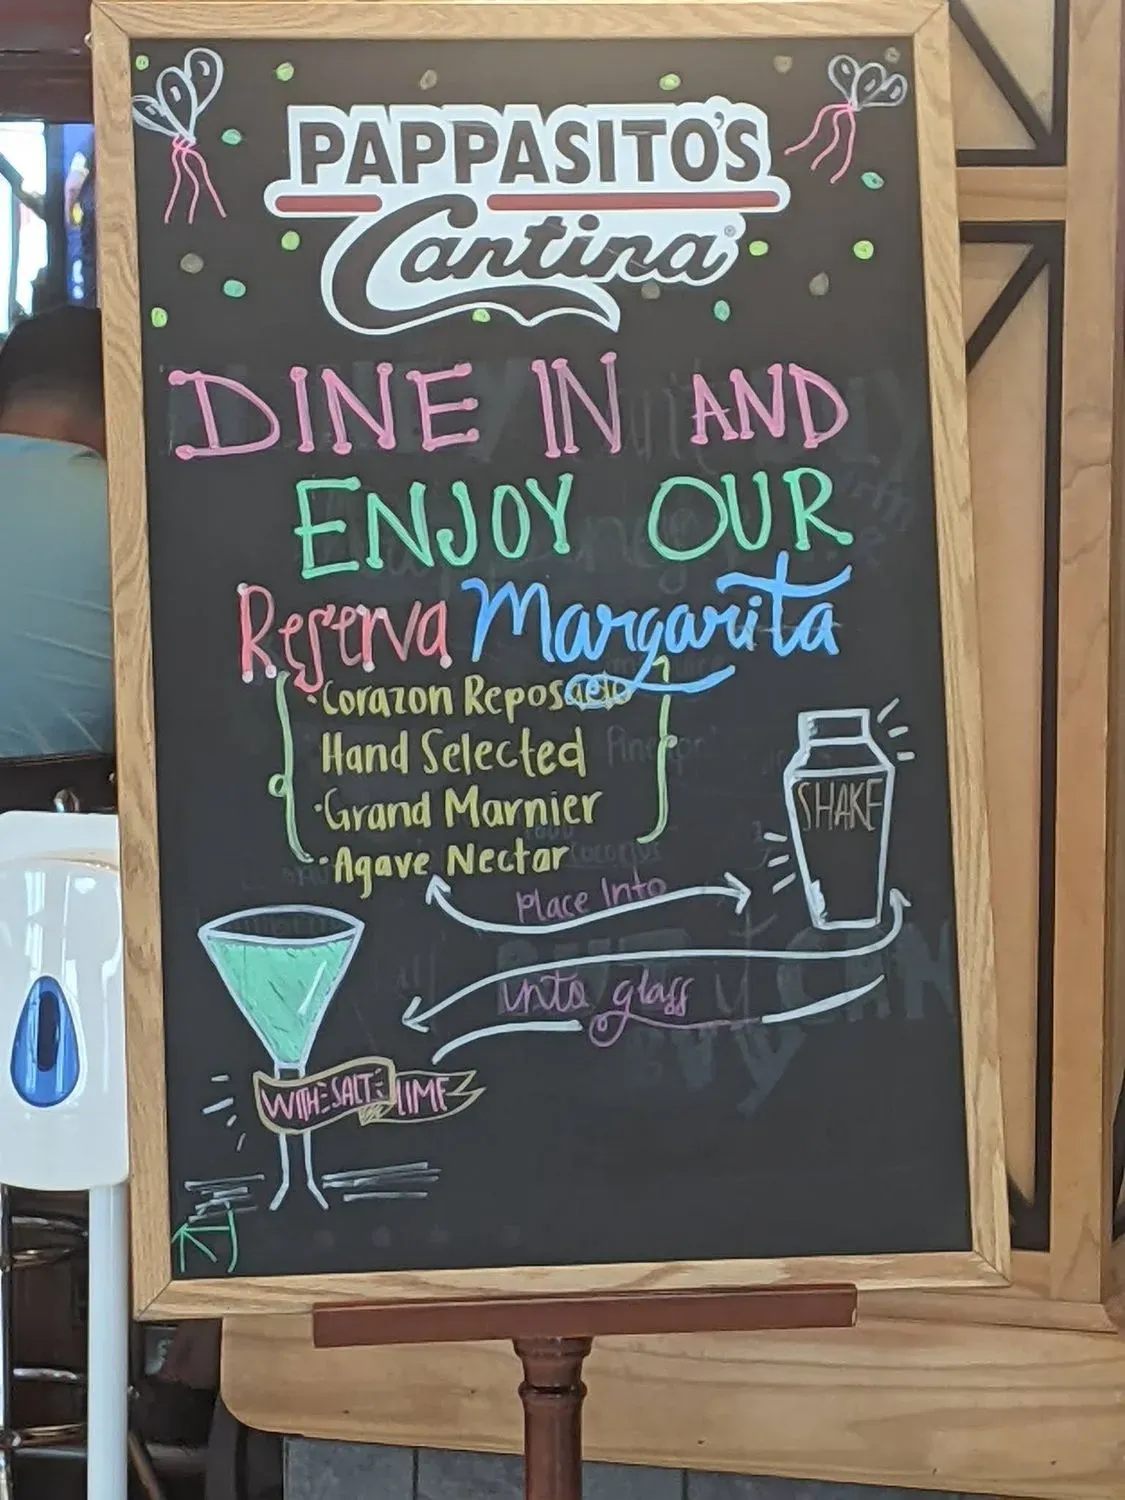 PAPPASITO'S
Cantina®
DINE IN AND
ENJOY OUR
Reserva Margarita
· Corazon Reposado
Hand Selected
· Grand Marnier
· Agave Nectar
SHAKE
Place Into
into glass
WITH SALT LIME